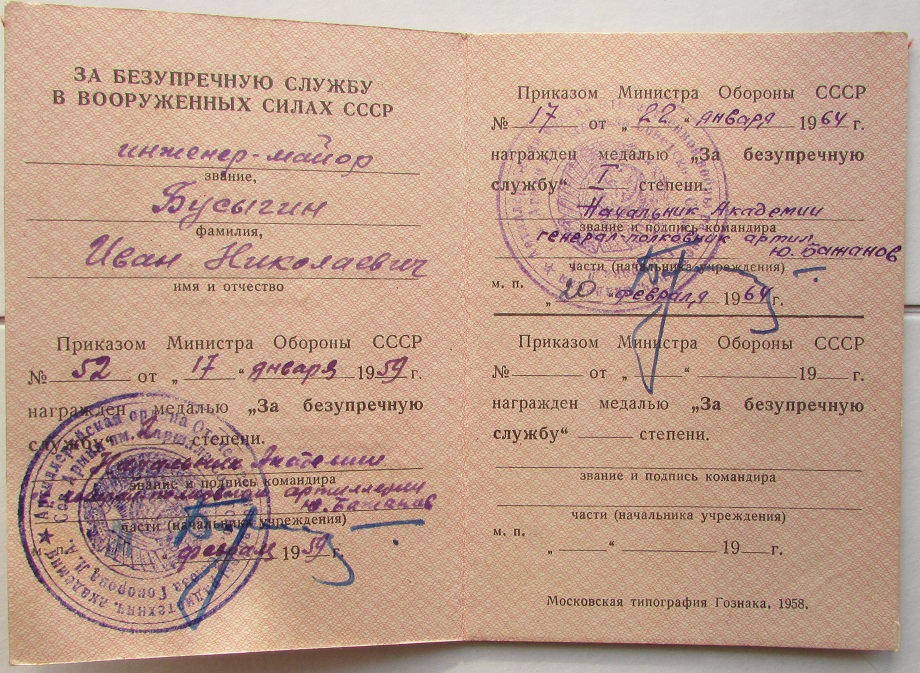 ЗА БЕЗУПРЕЧНУЮ СЛУЖБУ
В ВООРУЖЕННЫХ СИЛАХ СССР
инженер-майор
звание,
Бусыгин
фамилия,
Иван Николаевич
имя и отчество
Приказом Министра Обороны СССР
№ 52 от „17“ января 1959 г.
награжден медалью „За безупречную
службу“ 2 степени.
Начальник Академии
звание и подпись командира
генерал-полковник артиллерии
Ю. Бажанов
части (начальника учреждения)
м. п.
февраля 1959 г.
Приказом Министра Обороны СССР
№ 17 от „22“ января 1964 г.
награжден медалью „За безупречную
службу“ I степени.
Начальник Академии
звание и подпись командира
генерал-полковник артил.
Ю. Бажанов
части (начальника учреждения)
м. п.
„20“ февраля 1964 г.
Приказом Министра Обороны СССР
№ от „ “ 19 г.
награжден медалью „За безупречную
службу“ степени.
звание и подпись командира
части (начальника учреждения)
м. п.
„ “ 19 г.
Московская типография Гознака, 1958.